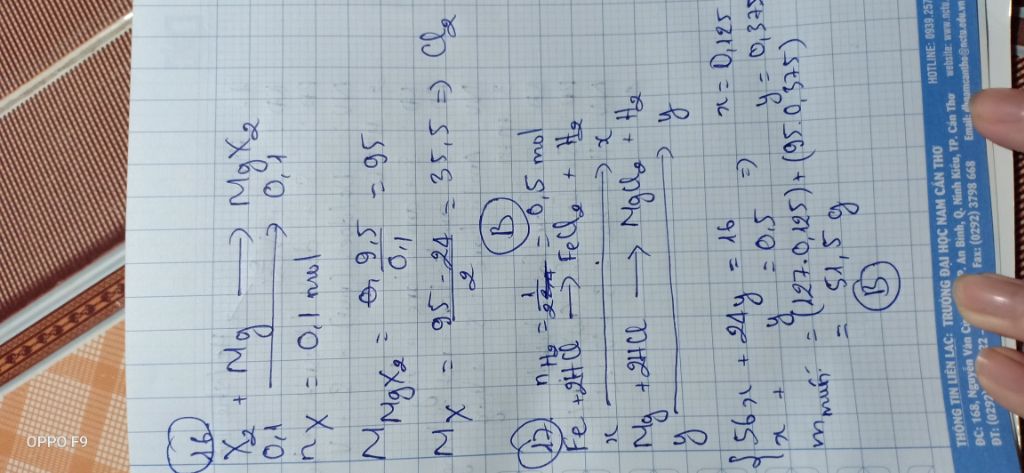 16
X₂ + Mg ⟶ MgX₂
0,1 ⟶ 0,1
n X = 0,1 mol
M MgX₂ = 9,5 / 0,1 = 95
M X = (95 - 24) / 2 = 35,5 => Cl₂
B
17
n H₂ = 1 / 2 = 0,5 mol
Fe + 2HCl ⟶ FeCl₂ + H₂
x ⟶ x
Mg + 2HCl ⟶ MgCl₂ + H₂
y ⟶ y
{ 56x + 24y = 16 => x = 0,125
x + y = 0,5 y = 0,375
m muối = (127.0,125) + (95.0,375)
= 51,5 g
B
THÔNG TIN LIÊN LẠC: TRƯỜNG ĐẠI HỌC NAM CẦN THƠ HOTLINE: 0939.257
ĐC: 168, Nguyễn Văn Cừ P. An Bình, Q. Ninh Kiều, TP. Cần Thơ website: www.nctu.edu.vn
ĐT: (0292) 22 Fax: (0292) 3798 668 Email: dnamcantho@nctu.edu.vn
OPPO F9